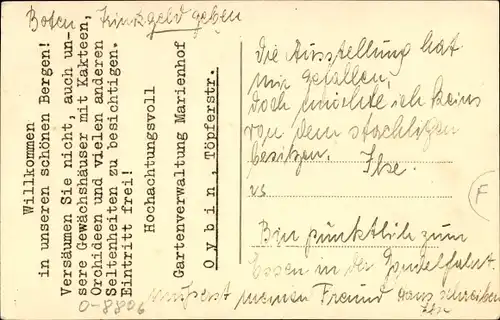 Boten Trinkgeld geben
Willkommen
in unseren schönen Bergen!
Versäumen Sie nicht, auch un-
sere Gewächshäuser mit Kakteen,
Orchideen und vielen anderen
Seltenheiten zu besichtigen.
Eintritt frei!
Hochachtungsvoll
Gartenverwaltung Marienhof
Oybin, Töpferstr.
0-8806
Die Ausstellung hat
mir gefallen,
doch möchte ich keins
von dem stachligen
besitzen. Ilse.
Bin pünktlich zum
Essen in der Gondelfahrt
meinen Freund Hans schreiben
F